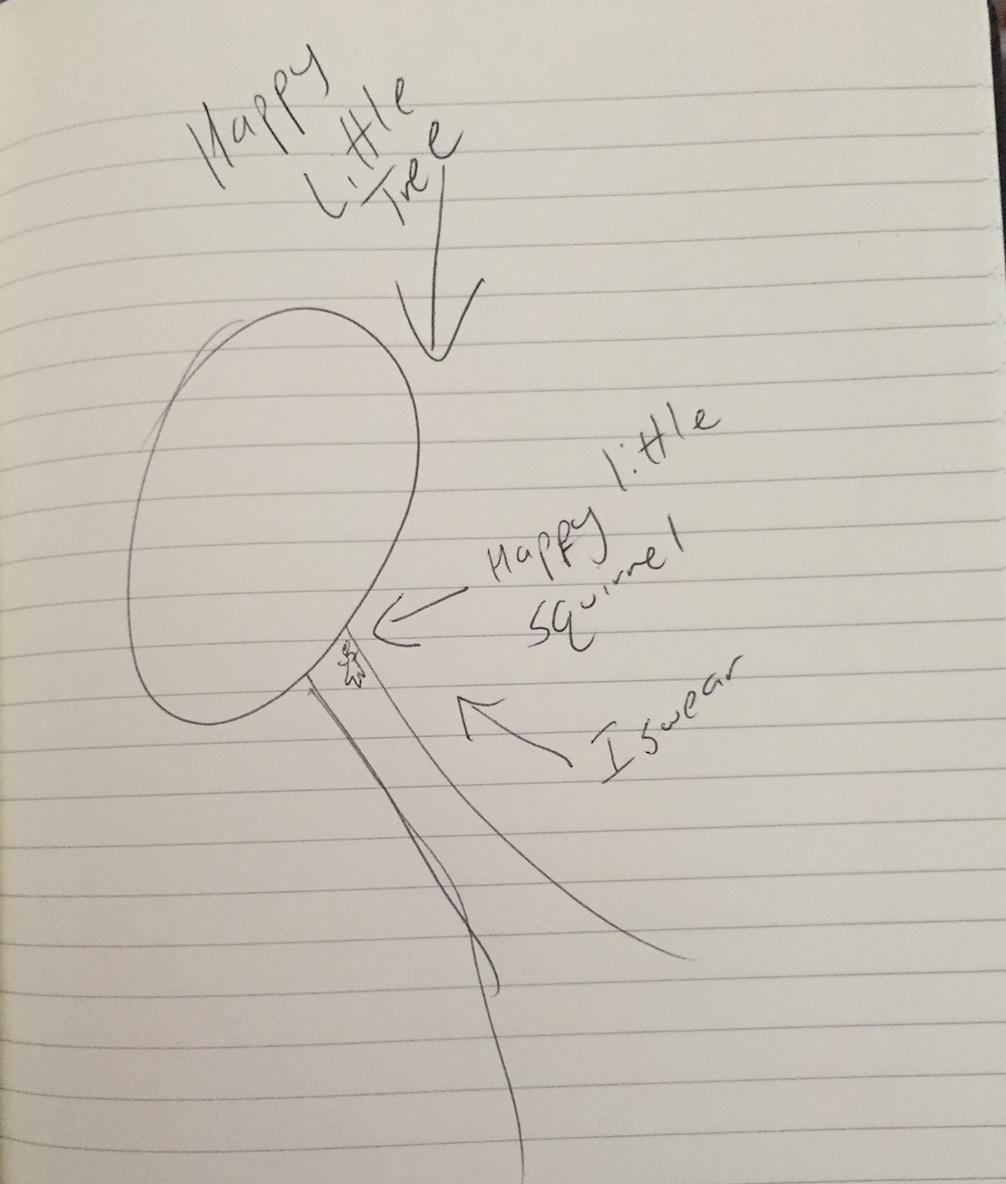 Happy
Little
Tree
Happy little
squirrel
I swear